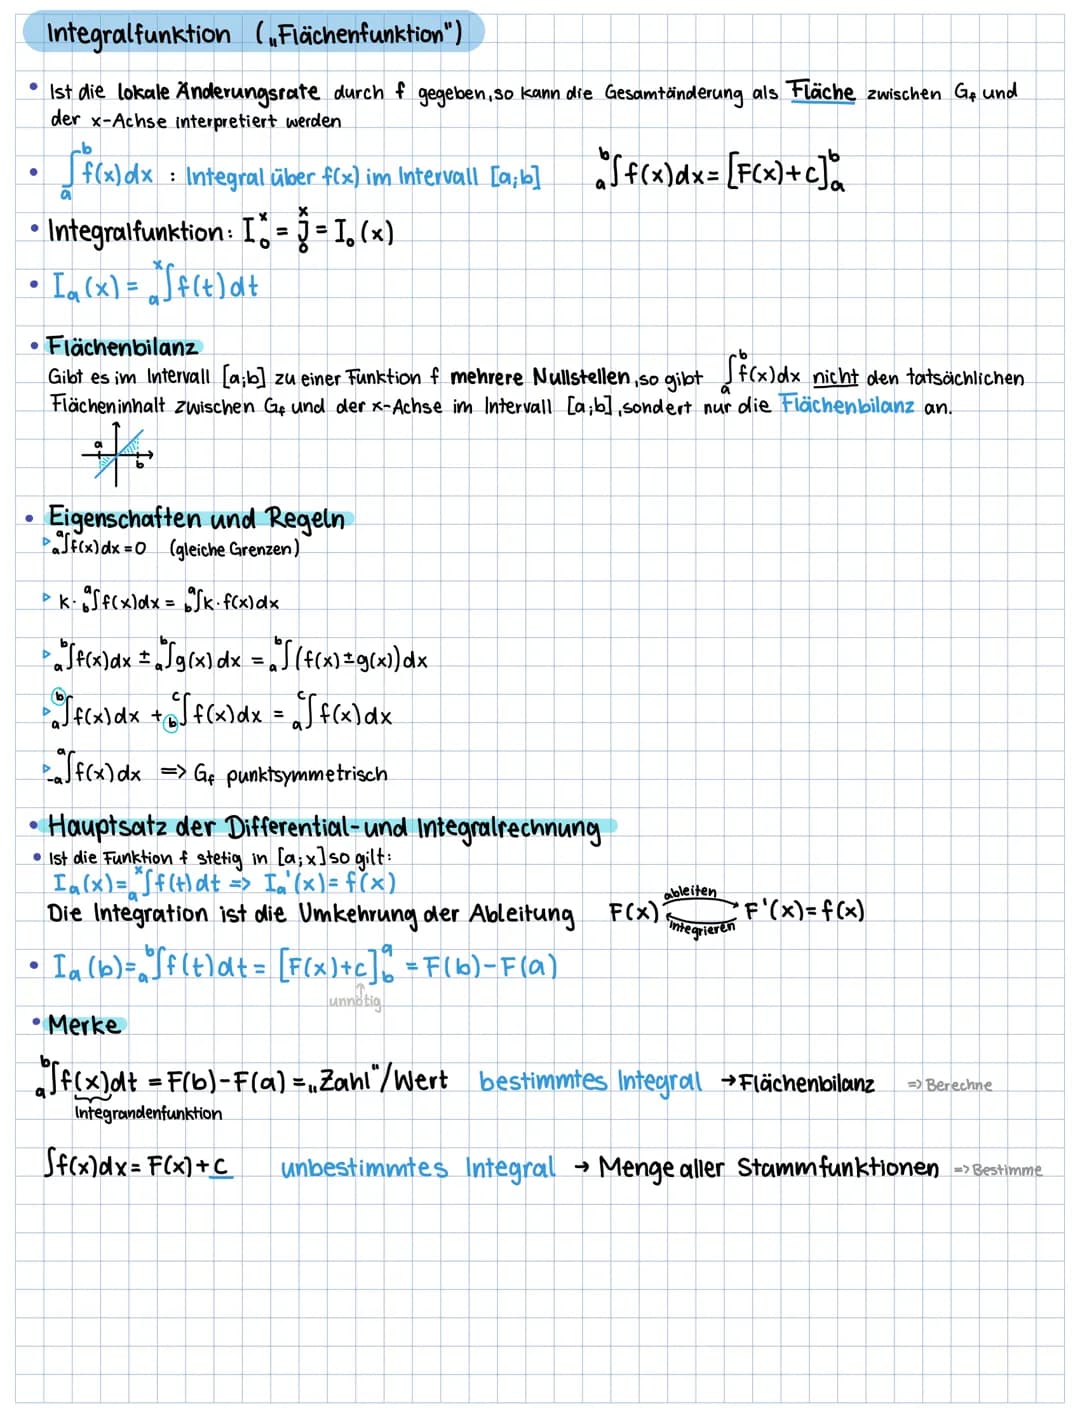 Integralfunktion („Flächenfunktion")
• Ist die lokale Änderungsrate durch f gegeben, so kann die Gesamtänderung als Fläche zwischen G_f und
der x-Achse interpretiert werden
• ₐ∫ᵇ f(x)dx : Integral über f(x) im Intervall [a;b]    ₐ∫ᵇ f(x)dx = [F(x)+c]ₐᵇ
• Integralfunktion: I₀ˣ = ₀∫ˣ = I₀(x)
• Iₐ(x) = ₐ∫ˣ f(t)dt
• Flächenbilanz
Gibt es im Intervall [a;b] zu einer Funktion f mehrere Nullstellen, so gibt ₐ∫ᵇ f(x)dx nicht den tatsächlichen
Flächeninhalt zwischen G_f und der x-Achse im Intervall [a;b], sondert nur die Flächenbilanz an.
a
b
• Eigenschaften und Regeln
▷ ₐ∫ᵃ f(x)dx = 0 (gleiche Grenzen)
▷ k · b∫ᵃ f(x)dx = b∫ᵃ k·f(x)dx
▷ ₐ∫ᵇ f(x)dx ± ₐ∫ᵇ g(x)dx = ₐ∫ᵇ (f(x)±g(x))dx
▷ ₐ∫ᵇ f(x)dx + b∫ᶜ f(x)dx = ₐ∫ᶜ f(x)dx
▷ ₋ₐ∫ᵃ f(x)dx => G_f punktsymmetrisch
• Hauptsatz der Differential- und Integralrechnung
• Ist die Funktion f stetig in [a;x] so gilt:
Iₐ(x) = ₐ∫ˣ f(t)dt => Iₐ'(x) = f(x)
Die Integration ist die Umkehrung der Ableitung    F(x) ableiten integrieren F'(x)=f(x)
• Iₐ(b) = ₐ∫ᵇ f(t)dt = [F(x)+c]bᵃ = F(b)-F(a)
↑
unnötig
• Merke
ₐ∫ᵇ f(x)dt = F(b)-F(a) = „Zahl"/Wert bestimmtes Integral → Flächenbilanz => Berechne
Integrandenfunktion
∫f(x)dx = F(x)+C unbestimmtes Integral → Menge aller Stammfunktionen => Bestimme